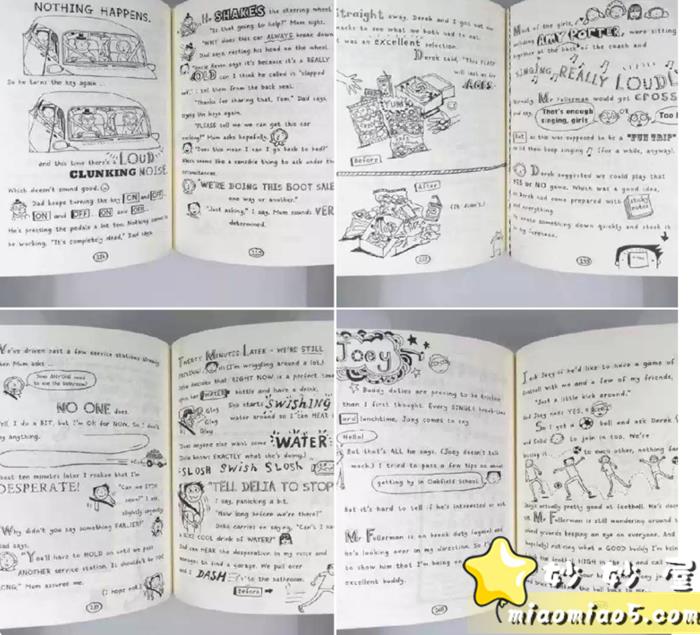 NOTHING HAPPENS.
So he turns the key again ...
and this time there's LOUD
CLUNKING NOISE
Which doesn't sound good.
Dad keeps turning the key ON and OFF
ON and OFF ON and OFF
He's pressing the pedals a lot too. Nothing
be working. "It's completely dead," Dad says.
He SHAKES the steering wheel
"Is that going to help?" Mum sighs.
"WHY does this car ALWAYS break down
Dad says, resting his head on the wheel.
Uncle Kevin says it's because it's a REALLY
OLD car. I think he called it "clapped
tell them from the back seat.
"Thanks for sharing that, Tom," Dad says
the keys again.
"PLEASE tell me we can get this car
Mum asks hopefully.
"Does this mean I can go back to bed?"
seems like a sensible thing to ask under the
circumstances.
"WE'RE DOING THIS BOOT SALE
one way or another."
"Just asking," I say. Mum sounds VERY
determined.
Straight away, Derek and I get out our
snacks to see what we both had to eat.
It was an excellent selection.
Derek said, "This PLENTY
will last us for
AGES."
YUM
Before
After
(It didn't.)
Most of the girls,
including AMY PORTER, were sitting
together at the back of the coach and
SINGING REALLY LOUDLY
Mr Fullerman would get CROSS
and say,
That's enough
singing, girls
OR
Too l
But as this was supposed to be a "FUN TRIP"
keep singing (for a while, anyway).
Derek suggested we could play that
YES or NO game. Which was a good idea,
Derek had come prepared with sticky
notes
and everything.
wrote something down quickly and stuck it
my forehead.
We've driven past a few service stations already
when Mum asks ...
Does ANYONE need
to use the bathroom?
NO ONE does.
(Well I do a BIT, but I'm OK for NOW. So I don't
say anything.
About ten minutes later I realise that I'm
DESPERATE!
"Can we STOP
now?" I ask,
slightly urgently.
"Why didn't you say something EARLIER?"
Dad says.
"You'll have to HOLD on until we pass
ANOTHER service station. It shouldn't be TOO
LONG," Mum assures me.
(I hope not.)
TWENTY MINUTES LATER - WE'RE STILL
DRIVING. (I'm wriggling around a lot.)
Delia decides that RIGHT NOW is a perfect time
her WATER bottle and have a drink.
Glug
Glug
Glug
She starts SWISHING
water around so I can HEAR
"Does anyone else want some WATER?"
(Delia knows EXACTLY what she's doing.)
SLOSH SWISH SLOSH
"TELL DELIA TO STOP
I say, panicking a bit.
"How long before we're there?"
Delia carries on saying, "Can't I
a NICE COOL drink of WATER?"
Dad can HEAR the desperation in my voice and
manages to find a garage. We pull over
and I DASH to the bathroom.
Before
Joey
Buddy duties are proving to be trickier
than I first thought. Every SINGLE break-time
and lunchtime, Joey comes to say.
Hello!
But that's ALL he says. (Joey doesn't talk
much.) I tried to pass a few tips on about
getting by in Oakfield School.
But it's hard to tell if he's interested or not
Mr Fullerman is on break duty (again) and
he's looking over in my direction. So I
to show him that I'm being an
excellent buddy.
I ask Joey if he'd like to have a game of
football with me and a few of my friends.
"Just a little kick around."
and Joey nods YES.
So I get a ball and ask Derek
and Solid to join in too. We're
to much other, nothing fan
Joey's actually pretty good at football. He's
Mr Fullerman is still wandering around
grounds keeping an eye on everyone. And
hopefully noticing what a GOOD buddy I'm being
妙妙屋
miaomiao5.com